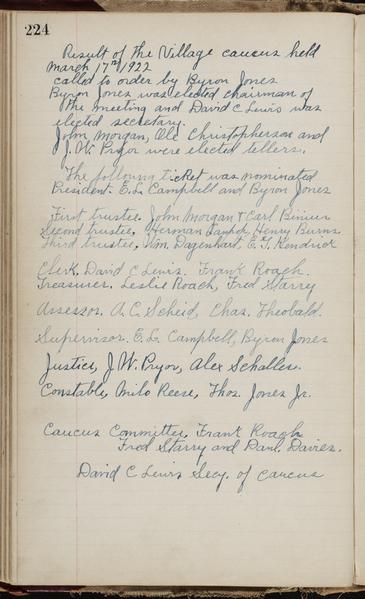 224
Result of the Village caucus held
March 17th 1922
called to order by Byron Jones
Byron Jones was elected chairman of
the meeting and David C Lewis was
elected secretary.
John Morgan, Ole Christopherson and
J. W. Pryor were elected tellers.
The following ticket was nominated
President. E. L. Campbell and Byron Jones
First trustee. John Morgan + Carl
Second trustee, Herman Henry Burns.
Third trustee, Wm. Dagenhart. E. J. Kendrick
Clerk. David C Lewis. Frank Roach.
Treasurer. Leslie Roach, Fred Starry
Assessor. A. C. Scheid, Chas. Theobald.
Supervisor. E. L. Campbell, Byron Jones
Justice, J. W. Pryor, Alex Schaller.
Constable, Milo Reese, Thos. Jones Jr.
Caucus Committee. Frank Roach
Fred Starry and Danl. Davies.
David C Lewis Secy. of caucus